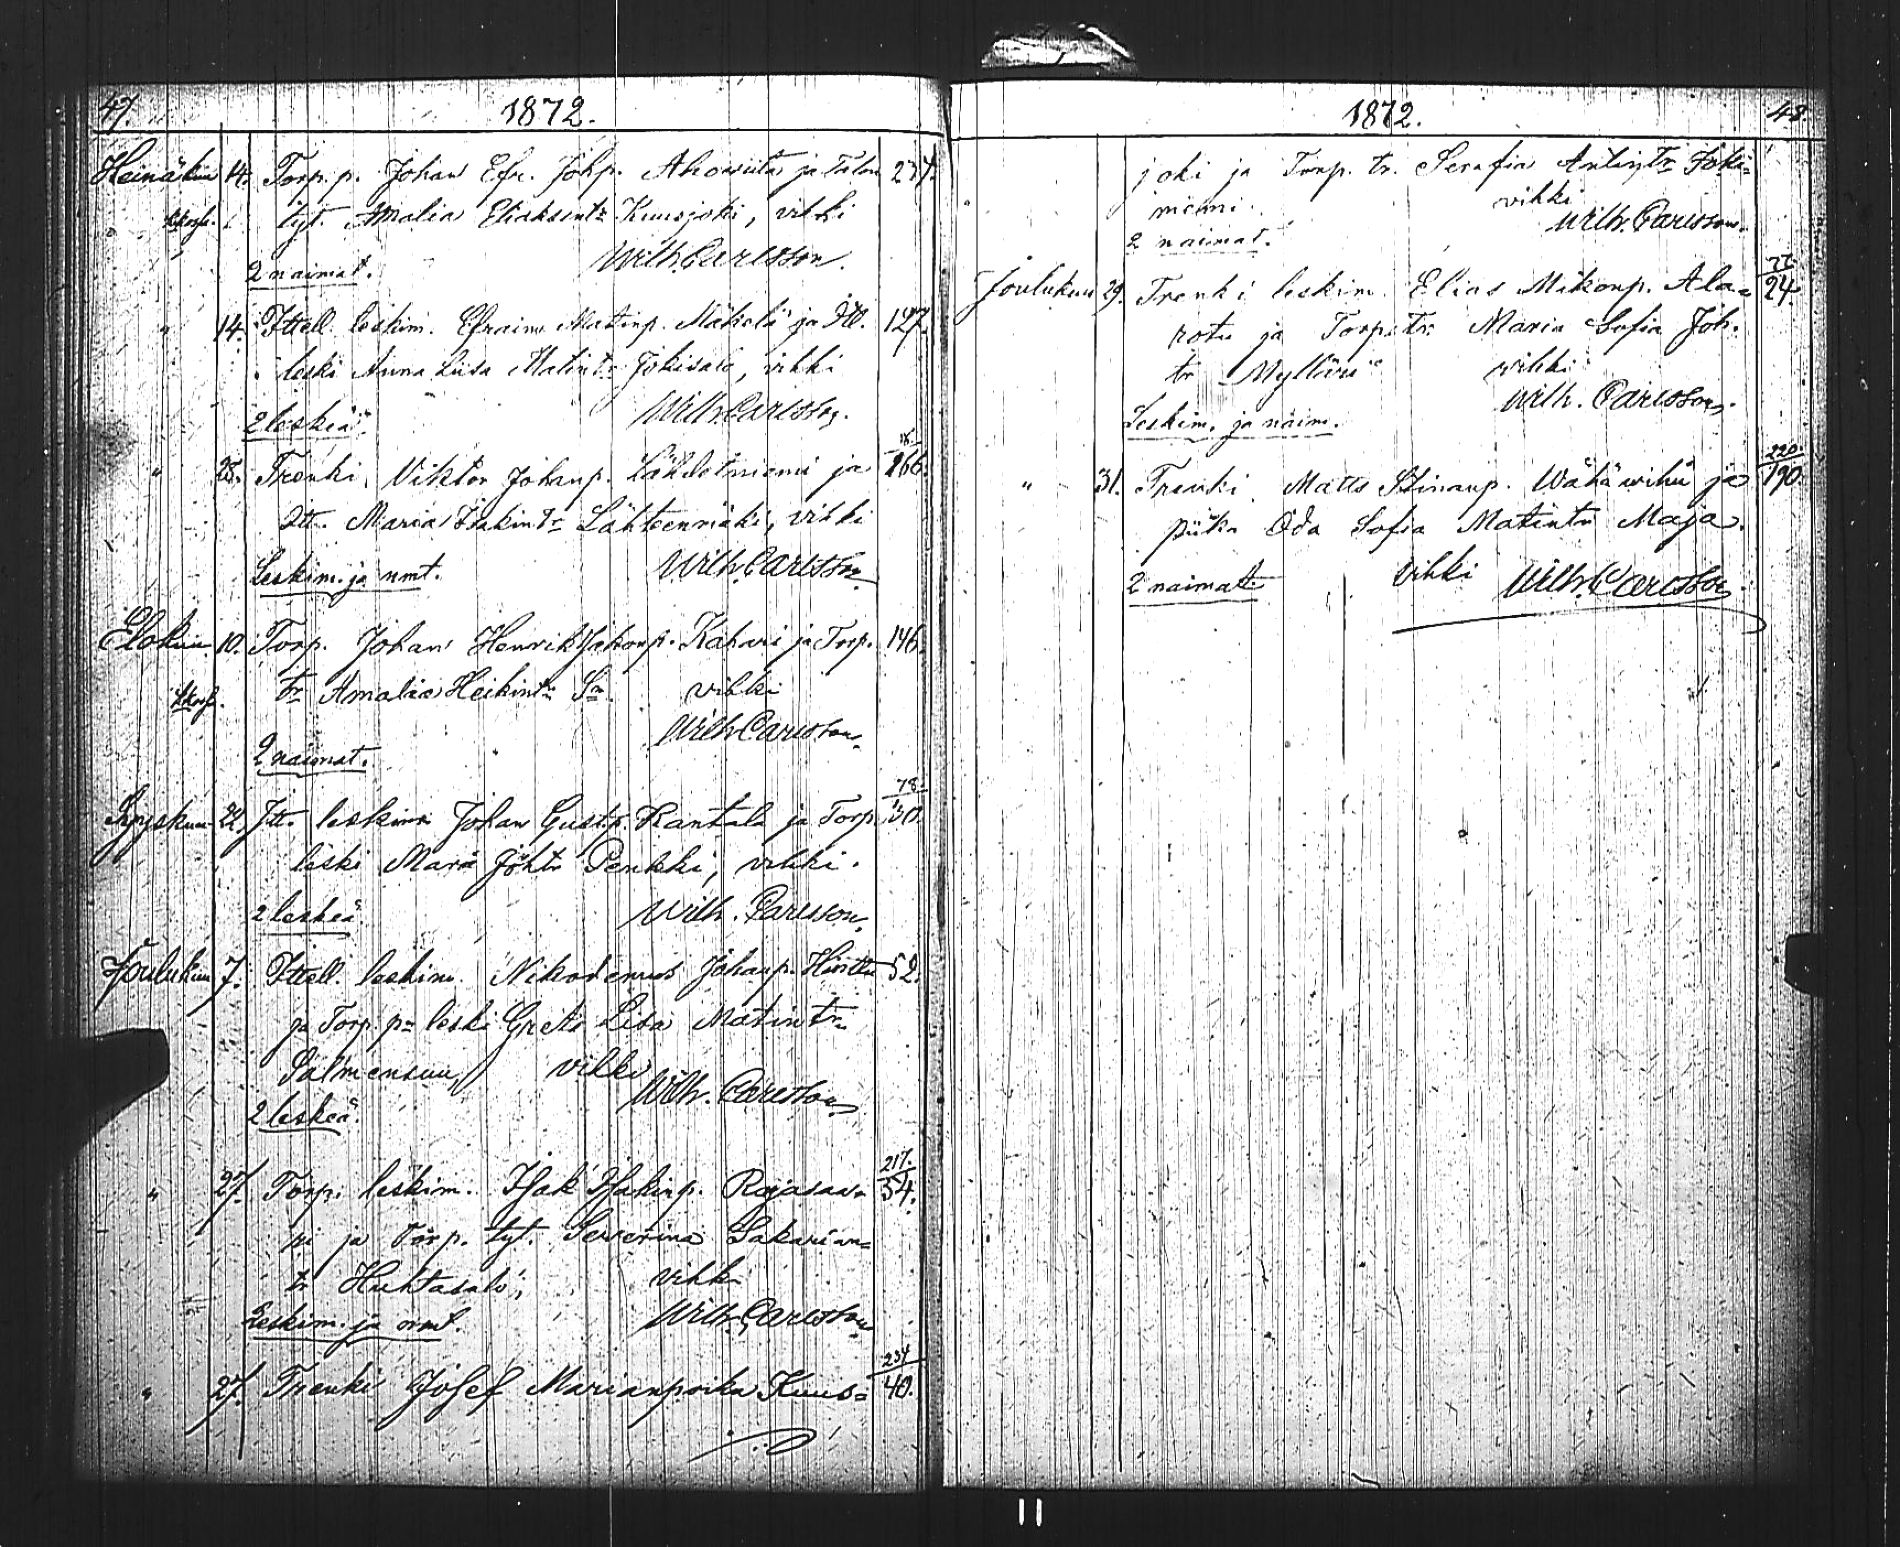 47. 1872.
Heinäkuu 14. Torp. p. Johan Efr. Johp. Ahorinta ja Talon 237.
tyt. Amalia Eliaksentr Kuusjoki, vihki
2 naimat. Wilh. Carlsson.
" 14. Ittell. leskim. Efraim Matinp. Mäkelä ja Itt. 127.
leski Anna Liisa Matintr Jokisalo, vihki
2 leskeä. Wilh. Carlsson.
" 28. Trenki Viktor Johanp. Lähdetniemi ja 166.
Itt. Maria Isakintr Lähteenmäki, vihki
Leskim. ja nmt. Wilh. Carlsson
Elokuu 10. Torp. Johan Henrik Jakonp. Kahari ja Torp. 146
tr Amalia Heikintr Sa vihki
2 naimat. Wilh Carlsson.
78
Syyskuu 22. Itt. leskim Johan Gust.p. Rantala ja Torp. 30.
leski Maria Johtr Penkki, vihki.
2 leskeä Wilh. Carlsson.
Joulukuu 7. Ittell. leskim. Nikodemus Johanp. Hiritta 52.
ja Torp. pn leski Greta Lisa Matintr
Salmensuu, vihki
2 leskeä. Wilh. Carlsson
217.
" 27. Torp. leskim. Isak Isakinp. Rajasaa= 54.
ri ja Torp. tyt. Serverina Sakarian=
tr Huhtasalo, vihki
Leskim. ja nmt. Wilh. Carlsson
234
" 27. Trenki Josef Marianpoika Kuus= 40.
1872. 48.
joki ja Torp. tr. Serafia Antintr Joki=
niemi. vihki
2 naimat. Wilh. Carlsson.
77
Joulukuu 29. Trenki leskim. Elias Mikonp. Ala= 24.
rotu ja Torp. tr. Maria Sofia Joh.
tr Mylläri vihki
Leskim. ja naim. Wilh. Carlsson.
220
" 31. Trenki Matts Stinanp. Wähäwihu ja 190.
piika Oda Sofia Matintr Maja.
2 naimat. vihki Wilh. Carlsson.
11